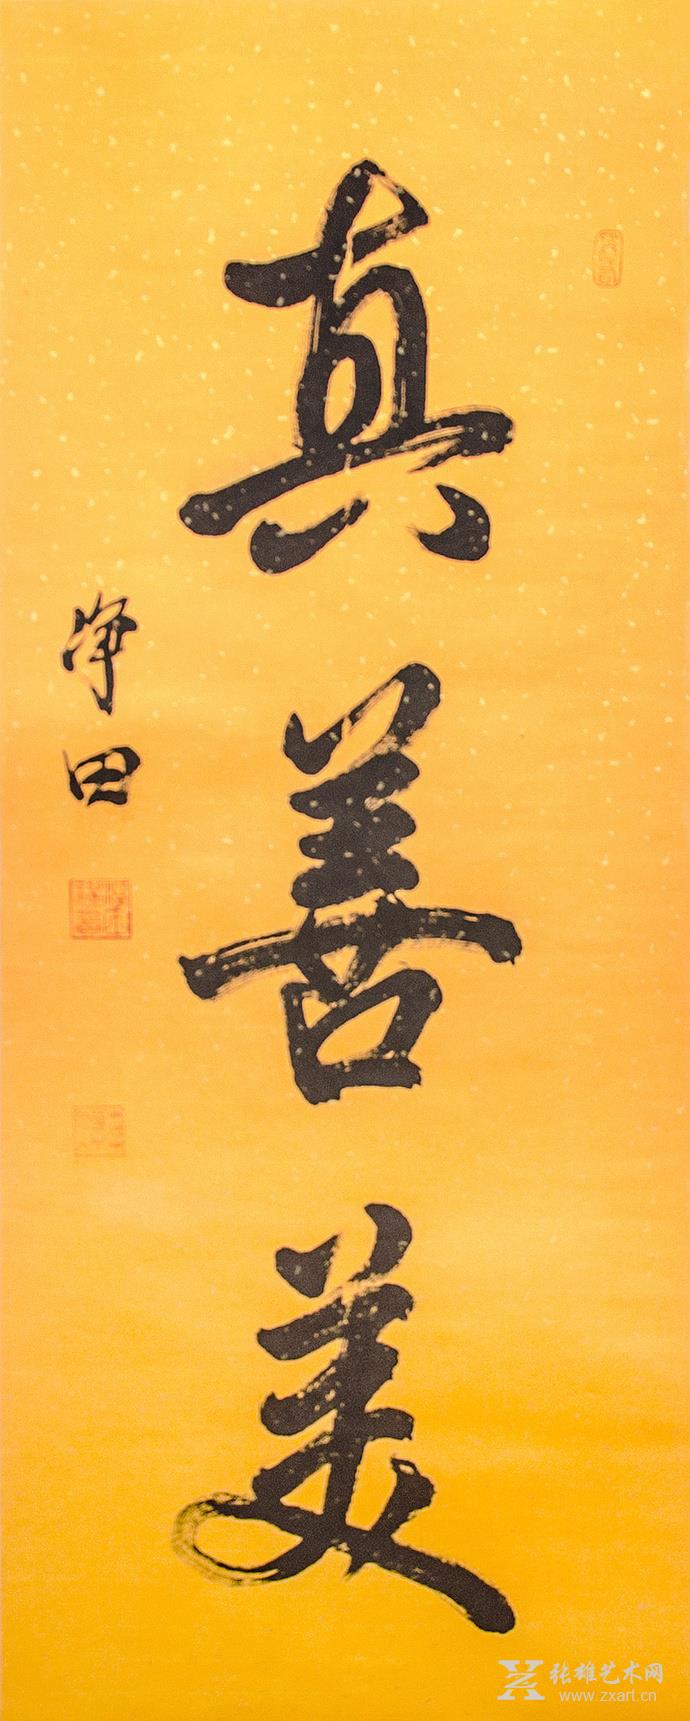 真善美
净田
张雄艺术网
www.zxart.cn